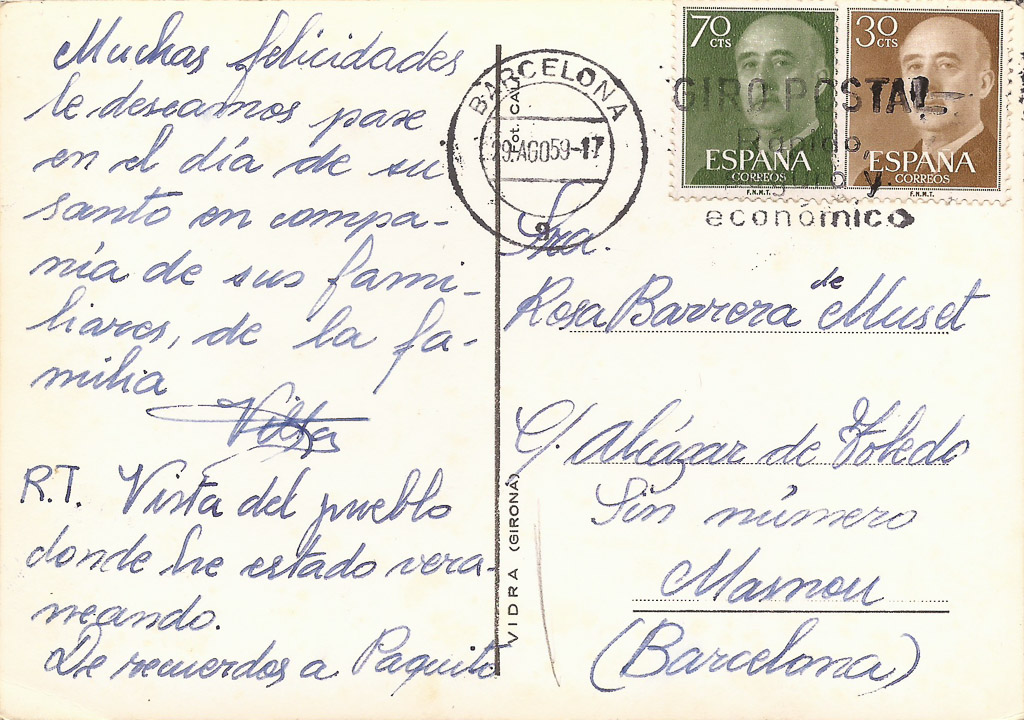 Muchas felicidades
le deseamos pase
en el día de su
santo en compa-
ñía de sus fami-
liares, de la fa-
milia
R.T. Vista del pueblo
donde he estado vera-
neando.
De recuerdos a Paquito
VIDRA (GIRONA)
BARCELONA
29.AGO59-17
9
70 CTS
ESPAÑA
CORREOS
F.N.M.T.
30 CTS
ESPAÑA
CORREOS
F.N.M.T.
GIRO POSTAL
Rápido,
y
económico
Sra.
Rosa Barrera de Muset
C/. Alcázar de Toledo
Sin número
Masnou
(Barcelona)